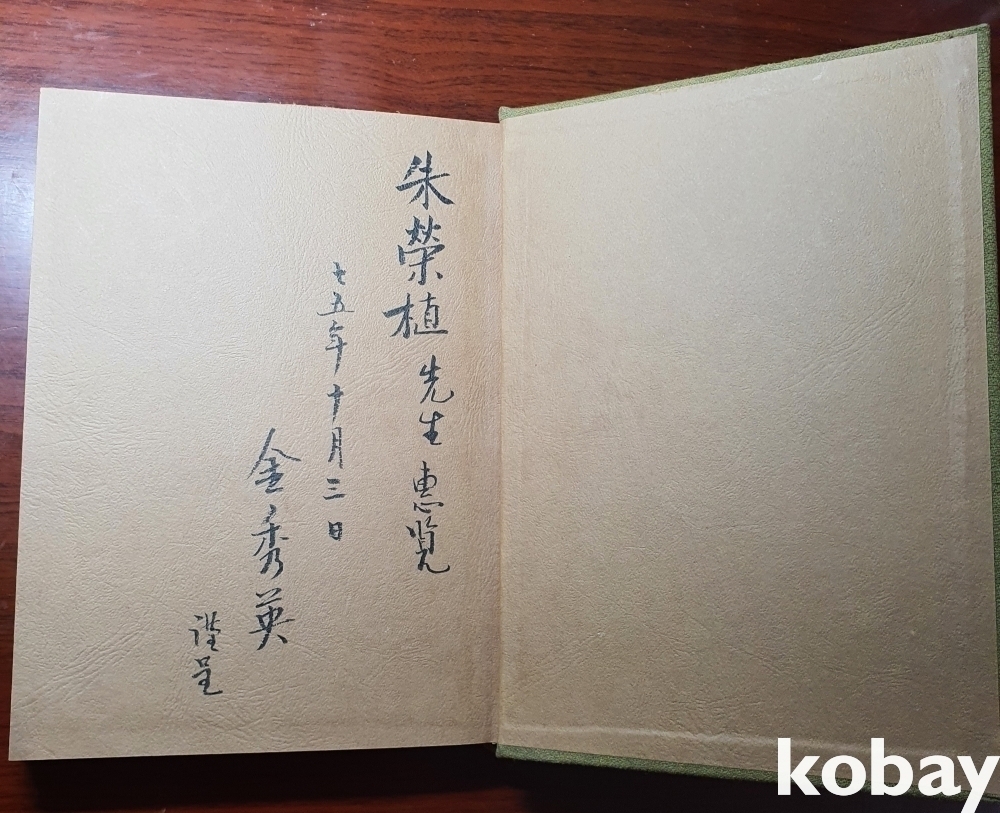 朱榮植 先生 惠覧
七五年 十月 三日
金秀英
謹呈
kobay